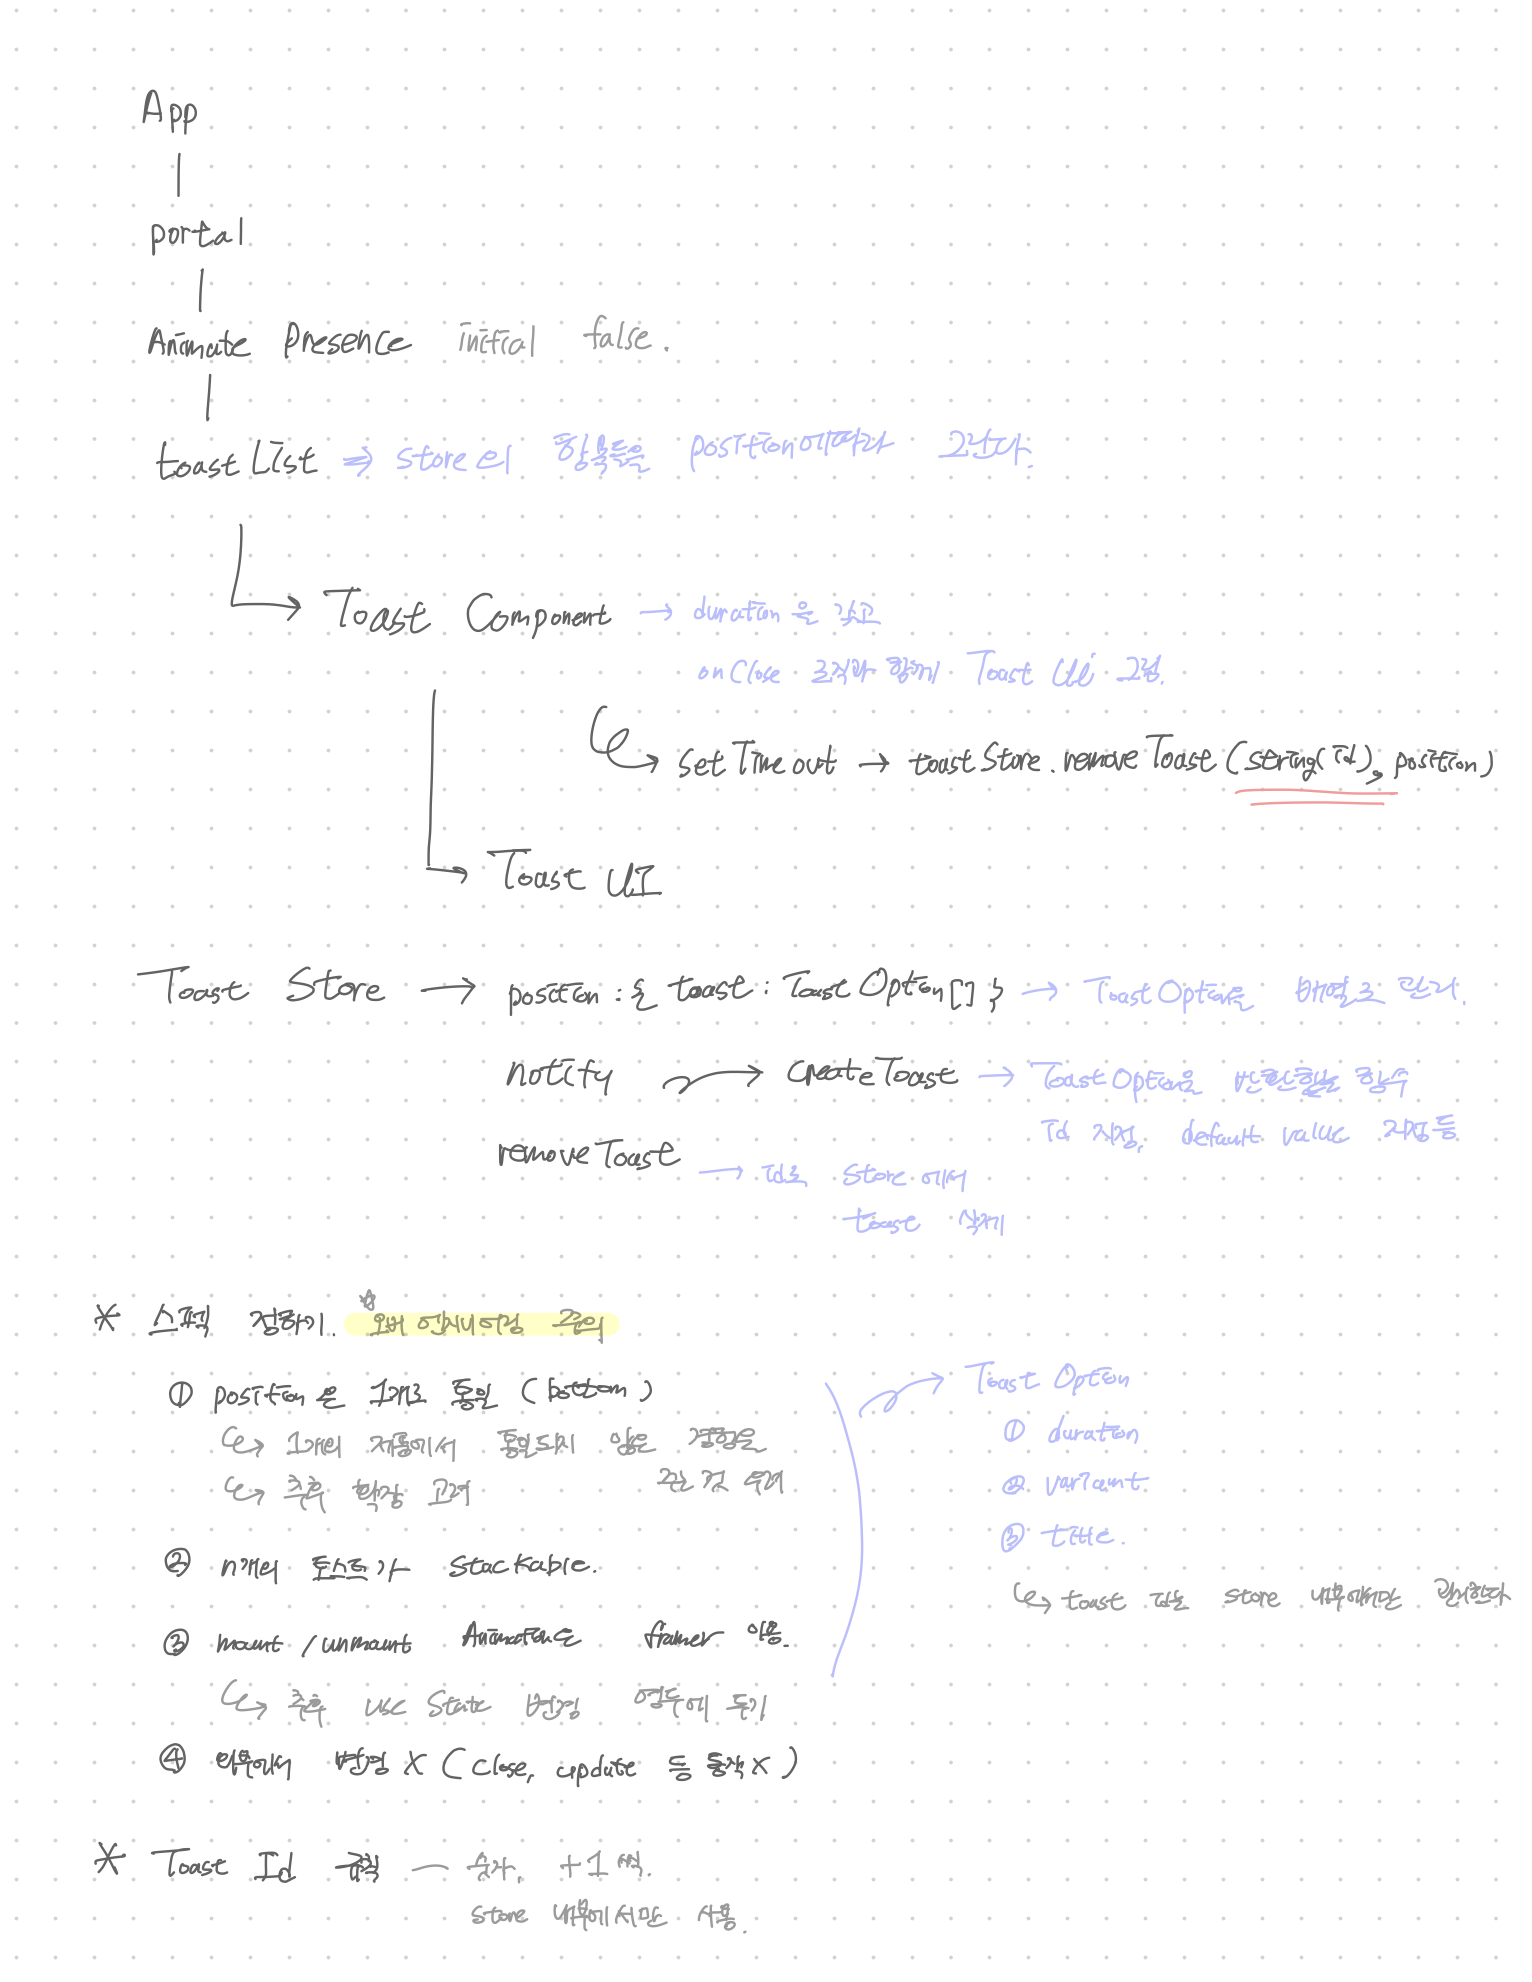 App
portal
Animate Presence initial false.
toast List ⇒ store의 항목들을 position에따라 그린다.
Toast Component → duration을 갖고
onClose 로직과 함께 Toast UI 그림.
set Timeout → toast Store. remove Toast (string(id), position)
Toast UI
Toast Store → position : { toast : Toast Option[] } → Toast Option을 배열로 관리.
notify → create Toast → Toast Option을 반환하는 함수
id 지정, default value 지정 등
remove Toast → id로 store에서
toast 삭제
* 스펙 정하기. ☆ 오버 엔지니어링 주의
① position은 1개로 통일 (bottom)
↪ 1개의 제품에서 통일되지 않은 경험을
주는 것 우려
↪ 추후 확장 고려
② n개의 토스트가 stackable.
③ mount / unmount Animation은 framer 이용.
↪ 추후 use State 변경 염두에 두기
④ 외부에서 변경 X (close, update 등 동작 X)
→ Toast Option
① duration
② variant
③ title.
↪ toast id는 store 내부에서만 관리한다
* Toast Id 규칙 — 숫자, +1씩.
store 내부에서만 사용.